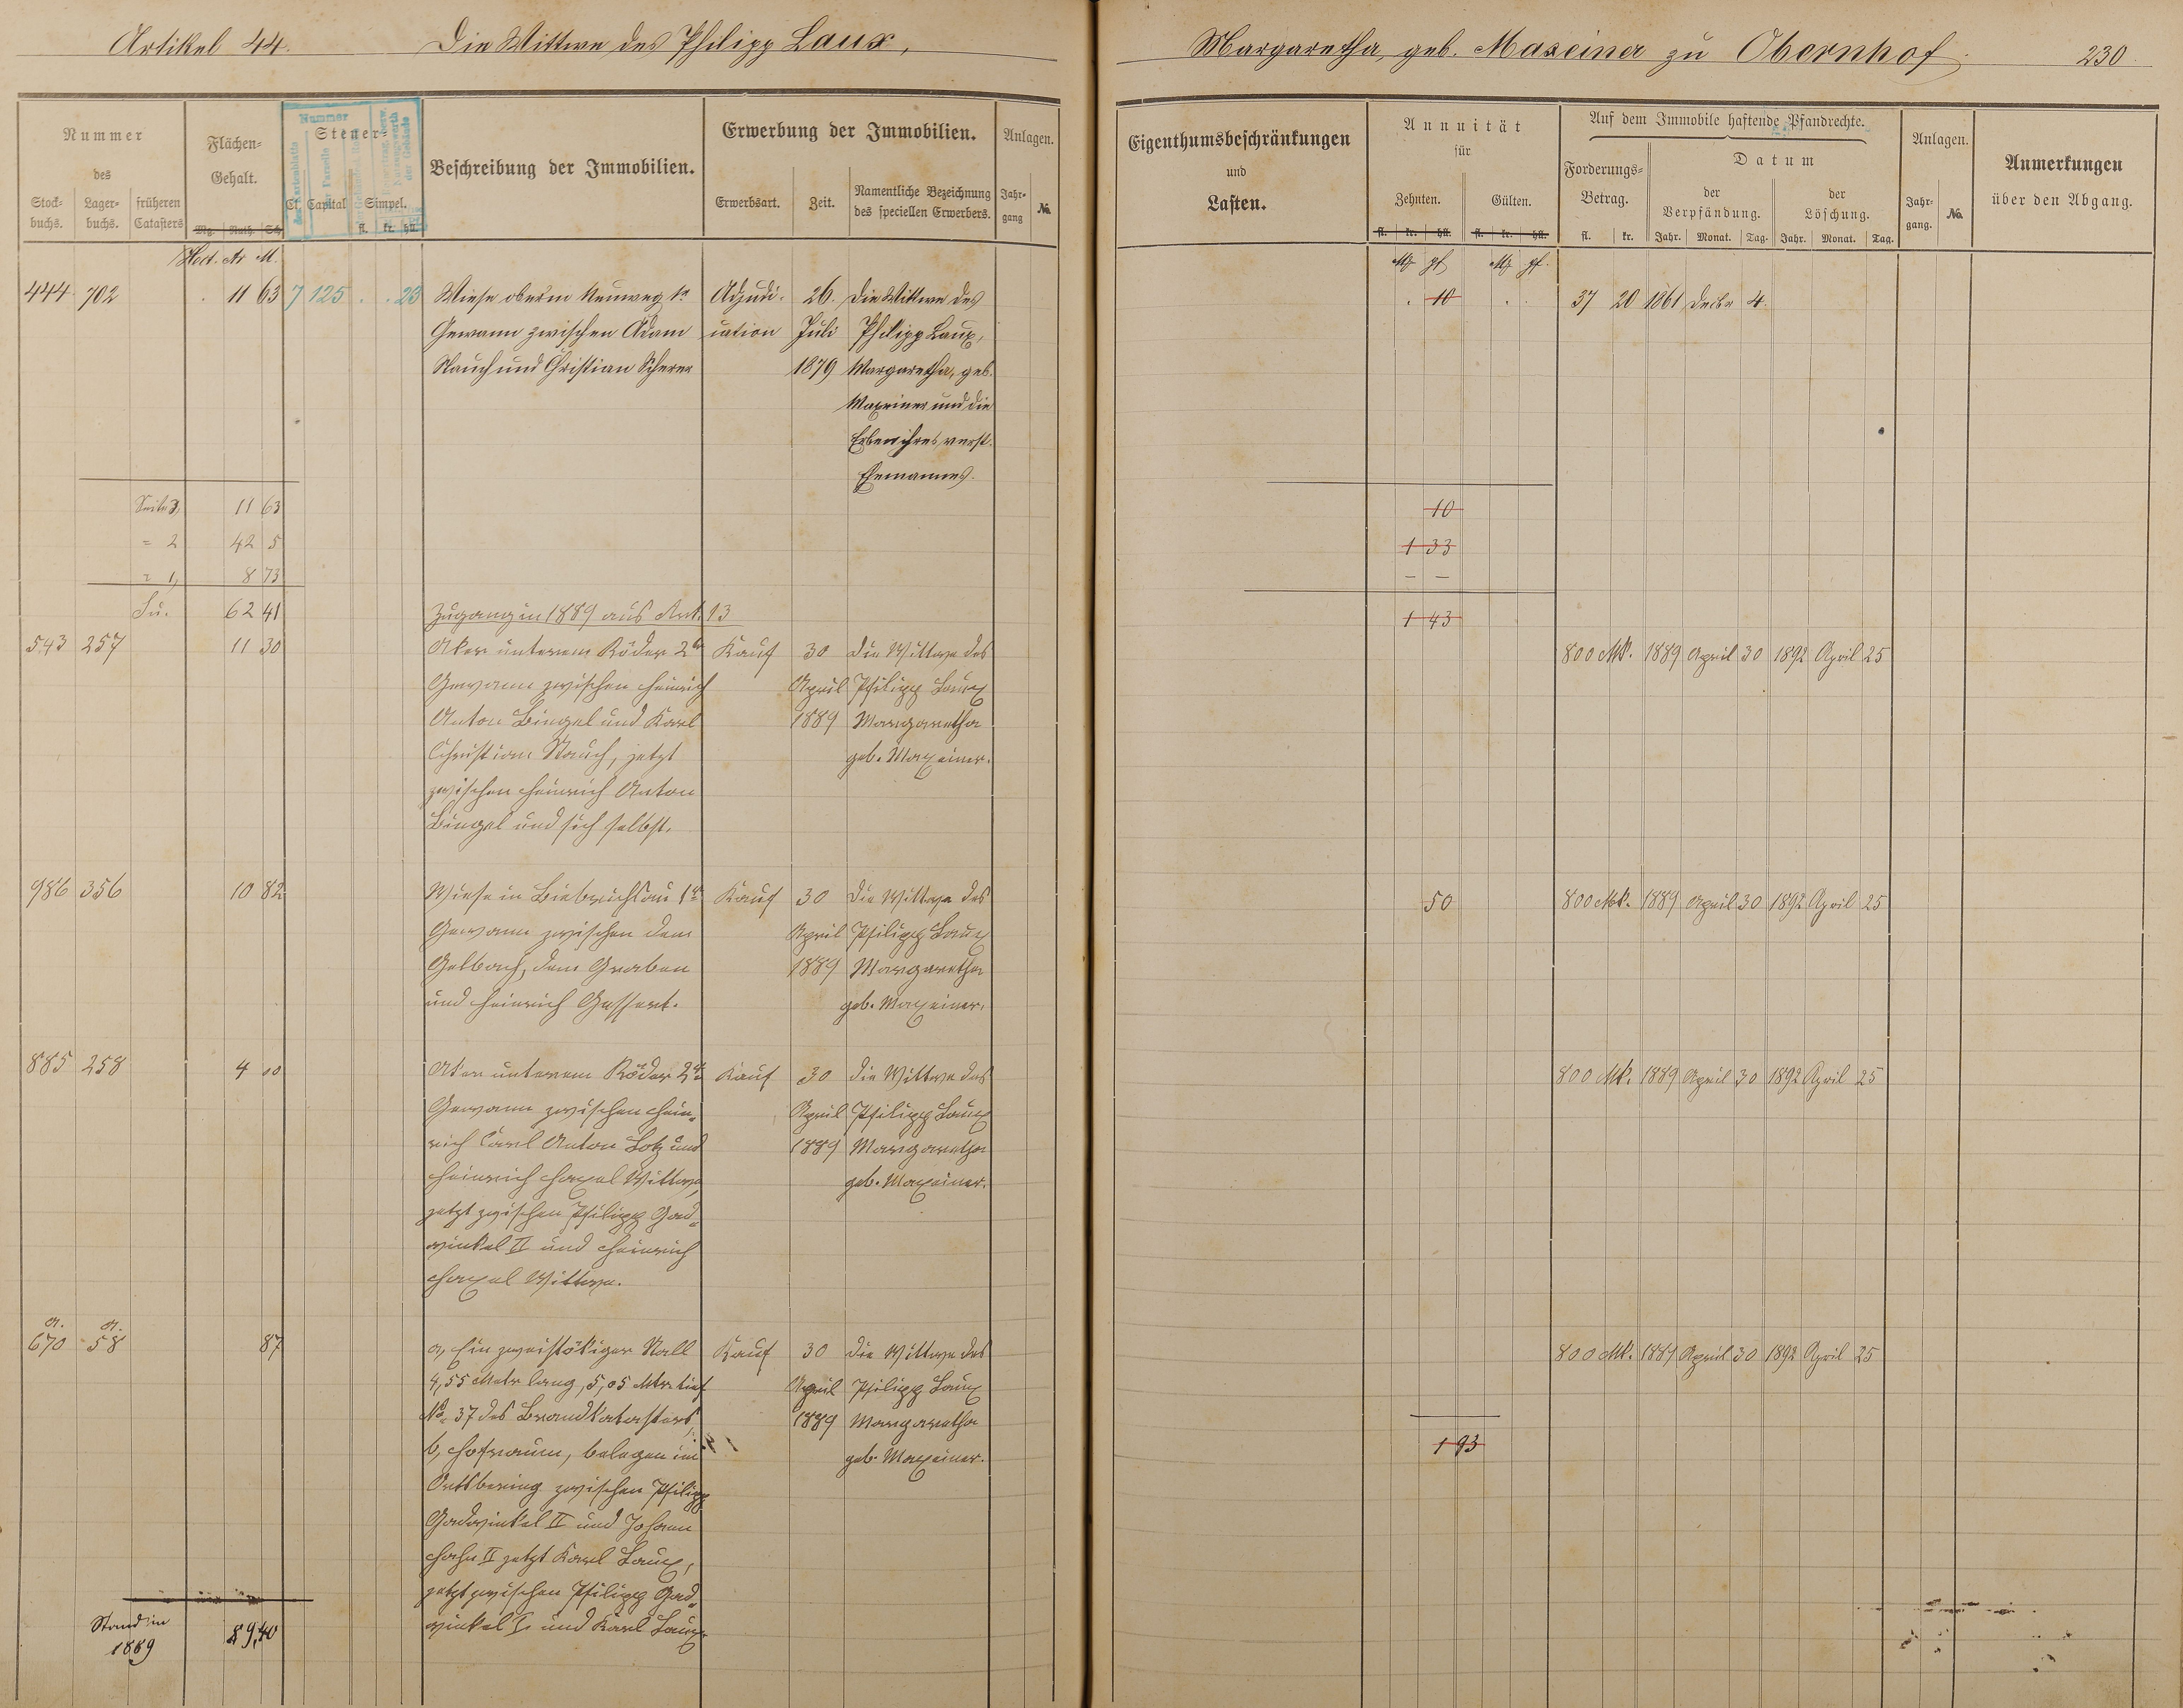 Artikel 44. Die Wittwe des Philipp Laux,
Margaretha, geb. Maxeiner zu Obernhof. 230
Nummer des
Stock-buchs. Lager-buchs. früheren Catasters
Flächen-Gehalt.
Mg. Ruth. Sch.
Hect. Ar M.
Steuer-
Cl. Capital Simpel.
fl. kr. hll.
Nummer
Beschreibung der Immobilien.
Erwerbung der Immobilien.
Erwerbsart. Zeit. Namentliche Bezeichnung des speciellen Erwerbers.
Anlagen.
Jahr-gang No.
Eigenthumsbeschränkungen
und
Lasten.
Annuität
für
Zehnten. Gülten.
fl. kr. hll. fl. kr. hll.
Mk pf Mk pf.
Auf dem Immobile haftende Pfandrechte.
Forderungs-Betrag.
fl. kr.
Datum
der Verpfändung. der Löschung.
Jahr. Monat. Tag. Jahr. Monat. Tag.
Anlagen.
Jahr-gang. No.
Anmerkungen
über den Abgang.
444. 702 11 63 7 125 . . 23 Wiese oberm Neuweg 1r Adjudi- 26. Die Wittwe des . 10 . . 37 20 1861 Decbr 4.
Gewann zwischen Adam cation Juli Philipp Laux,
Rauch und Christian Scherer 1879 Margaretha, geb.
Maxeiner und die
Erben ihres verst.
Ehemannes.
Seite 3, 11 63 10
= 2 42 5 1 33
= 1, 8 73 – –
Su. 62 41 1 43
Zugang in 1889 aus Art. 13
543 257 11 30 Aker unterem Röder 2r Kauf 30 die Wittwe des 800 Mk. 1889 April 30 1892 April 25
Gewann zwischen Heinrich April Philipp Laux
Anton Bingel und Karl 1889 Margaretha
Christian Rauch, jetzt geb. Maxeiner.
zwischen Heinrich Anton
Bingel und sich selbst.
986 356 10 82 Wiese in Biebrichsau 1r Kauf 30 die Wittwe des 50 800 Mk. 1889 April 30 1892 April 25
Gewann zwischen dem April Philipp Laux
Gelbach, dem Graben 1889 Margaretha
und Heinrich Gessert. geb. Maxeiner.
885 258 4 00 Aker unterem Röder 2r Kauf 30 die Wittwe des 800 Mk. 1889 April 30 1892 April 25
Gewann zwischen Hein- April Philipp Laux
rich Carl Anton Lotz und 1889 Margaretha
Heinrich Haxel Wittwe, geb. Maxeiner.
jetzt zwischen Philipp Gad-
winkel II und Heinrich
Haxel Wittwe.
a. a.
670 58 87 a, Ein zweistökiger Stall Kauf 30 die Wittwe des 800 Mk. 1889 April 30 1892 April 25
4,55 Metr lang, 5,05 Mtr. tief April Philipp Laux
No. 37 des Brandkatasters, 1889 Margaretha
b, Hofraum, belegen im geb. Maxeiner.
1 93
Ortsbering zwischen Philipp
Gadwinkel II und Johann
Hahn II jetzt Karl Laux,
jetzt zwischen Philipp Gad-
winkel I. und Karl Laux.
Stand in
1889 89,40